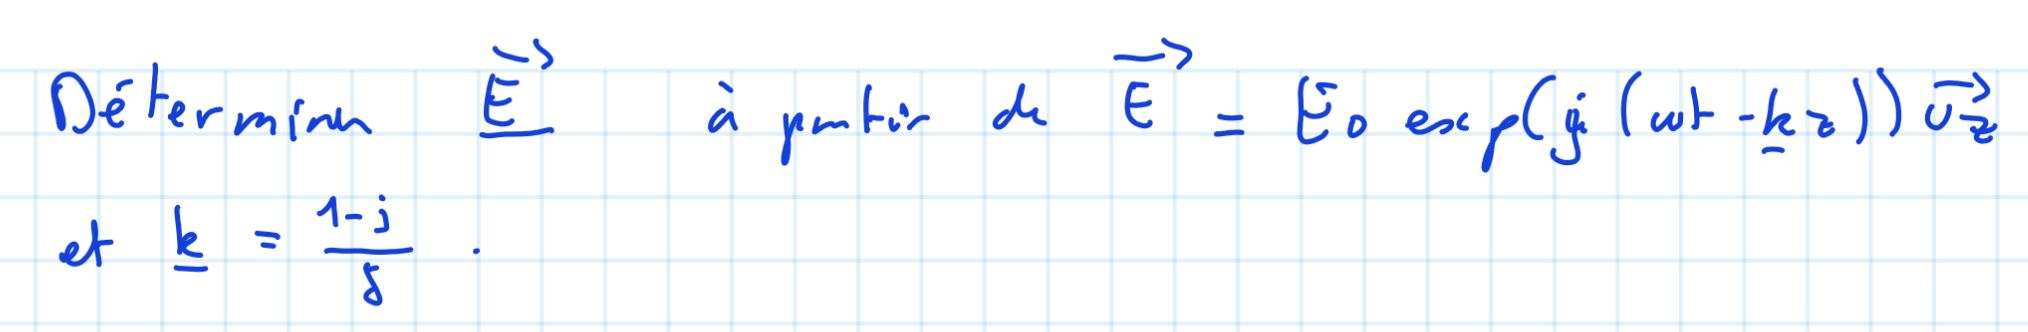 Déterminer \underline{\vec{E}} à partir de \vec{E} = E_0 exp(j(ωt - \underline{k}z)) \vec{u_z}
et \underline{k} = \frac{1-j}{δ} .